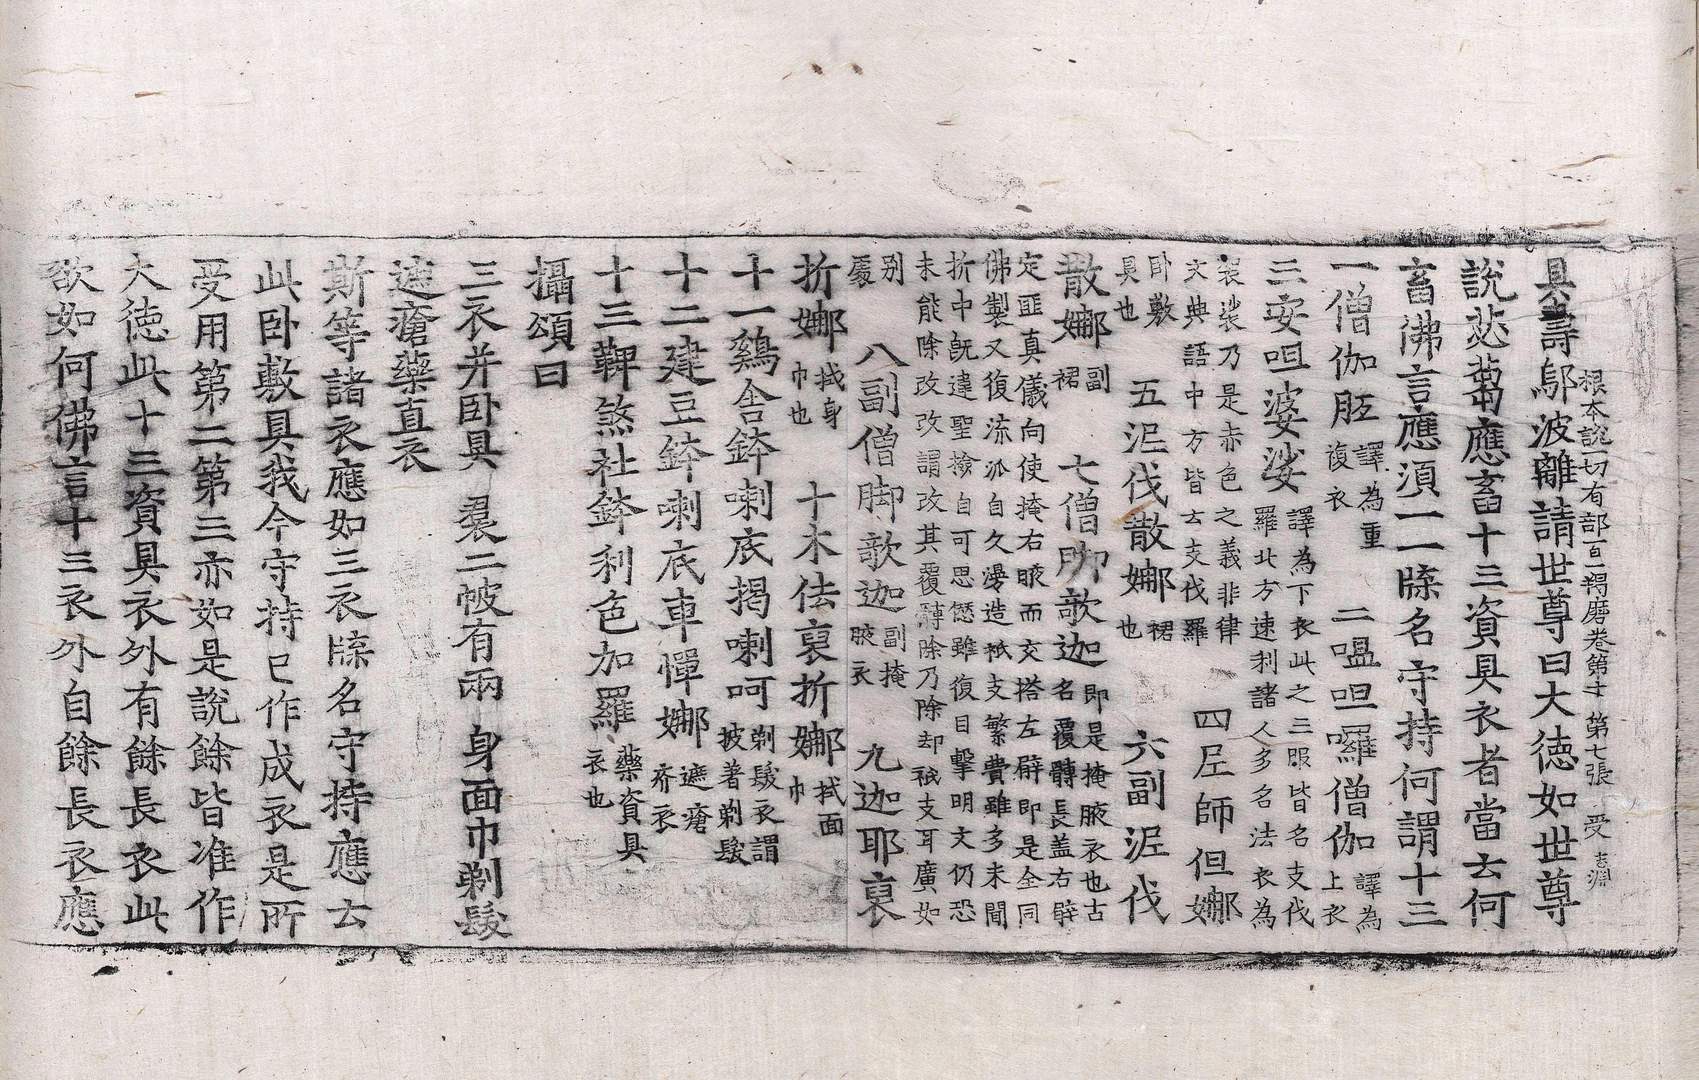 根本說一切有部百一羯磨卷第十 第七張 受
具壽鄔波離請世尊曰大德如世尊
說苾芻應畜十三資具衣者當云何
畜佛言應須一一牒名守持何謂十三
一僧伽胝譯為重複衣 二嗢呾囉僧伽譯為上衣
三安呾婆娑譯為下衣此之三服皆名支伐羅北方速利諸人多名法衣為
袈裟乃是赤色之義非律文典語中方皆云支伐羅 四尼師但娜
卧敷具也 五泥伐散娜裙也 六副泥伐
散娜副裙 七僧脚欹迦即是掩腋衣也古名覆髆長盖右臂
定匪真儀向使掩右腋而交搭左臂即是全同佛製又復流派自久漫造祇支繁費雖多未聞
折中旣違聖撿自可思愆雖復目擊明文仍恐未能除改改謂改其覆髆除乃除却祇支耳廣如
別處 八副僧脚欹迦副掩腋衣 九迦耶裒
折娜拭身巾也 十木佉裒折娜拭面巾
十一鷄舍鉢喇底揭喇呵剃髮衣謂披著剃髮
十二建豆鉢喇底車憚娜遮瘡疥衣
十三鞞煞社鉢利色加羅藥資具衣也
攝頌曰
三衣并卧具 裠二帔有兩 身面巾剃髮
遮瘡藥直衣
斯等諸衣應如三衣牒名守持應云
此卧敷具我今守持已作成衣是所
受用第二第三亦如是說餘皆准作
大德此十三資具衣外有餘長衣此
欲如何佛言十三衣外自餘長衣應